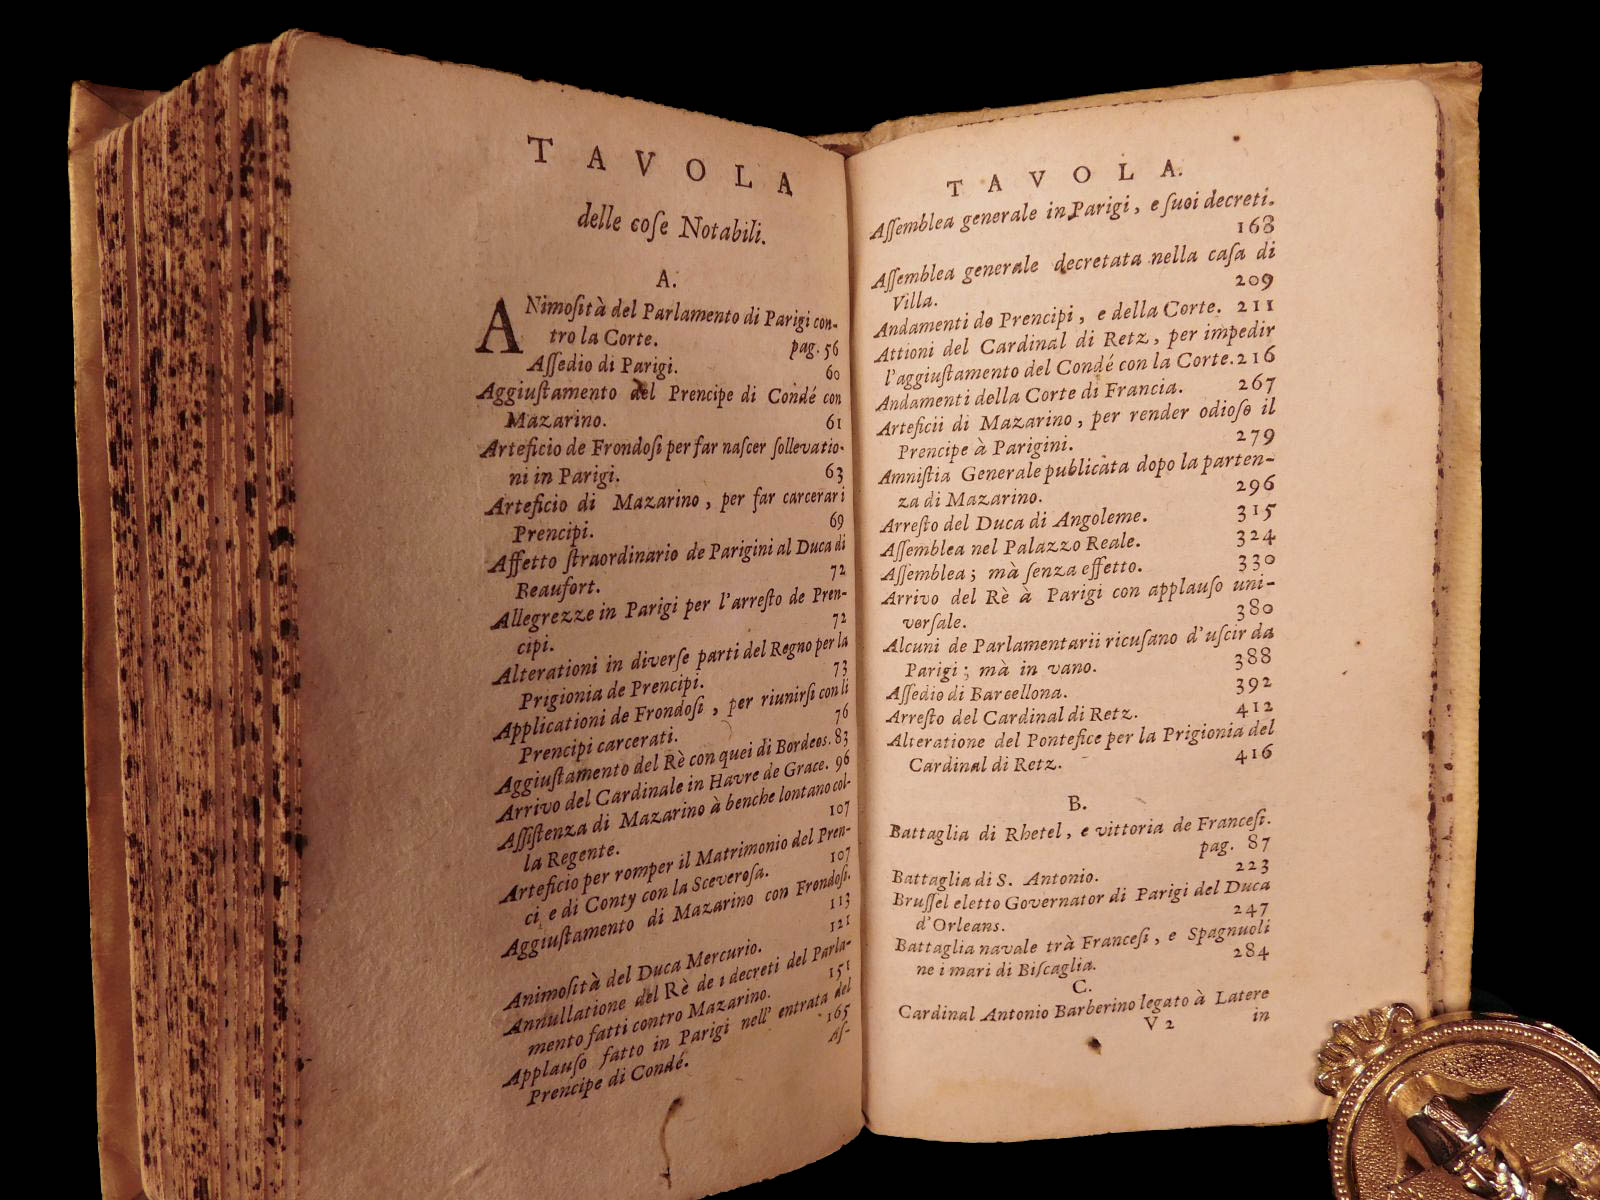 TAVOLA
delle coſe Notabili.
A.
ANimoſità del Parlamento di Parigi con-
tro la Corte. pag. 56
Aſſedio di Parigi. 60
Aggiuſtamento del Prencipe di Condé con
Mazarino. 61
Arteficio de Frondoſi per far naſcer ſollevatio-
ni in Parigi. 63
Arteficio di Mazarino, per far carcerar i
Prencipi. 69
Affetto ſtraordinario de Parigini al Duca di
Beaufort. 72
Allegrezze in Parigi per l'arreſto de Pren-
cipi. 72
Alterationi in diverſe parti del Regno per la
Prigionia de Prencipi. 73
Applicationi de Frondoſi, per riunirſi con li
Prencipi carcerati. 76
Aggiuſtamento del Rè con quei di Bordeos. 83
Arrivo del Cardinale in Havre de Grace. 96
Aſſiſtenza di Mazarino à benche lontano col-
la Regente. 107
Arteficio per romper il Matrimonio del Pren-
ci, e di Conty con la Sceveroſa. 107
Aggiuſtamento di Mazarino con Frondoſi.
113
Animoſità del Duca Mercurio. 121
Annullatione del Rè de i decreti del Parla-
mento fatti contro Mazarino. 151
Applauſo fatto in Parigi nell' entrata del
Prencipe di Condé. 165
Aſ-
TAVOLA.
Aſſemblea generale in Parigi, e ſuoi decreti.
168
Aſſemblea generale decretata nella caſa di
Villa. 209
Andamenti de Prencipi, e della Corte. 211
Attioni del Cardinal di Retz, per impedir
l'aggiuſtamento del Condé con la Corte. 216
Andamenti della Corte di Francia. 267
Arteficii di Mazarino, per render odioſo il
Prencipe à Parigini. 279
Amniſtia Generale publicata dopo la parten-
za di Mazarino. 296
Arreſto del Duca di Angoleme. 315
Aſſemblea nel Palazzo Reale. 324
Aſſemblea; mà ſenza effetto. 330
Arrivo del Rè à Parigi con applauſo uni-
verſale. 380
Alcuni de Parlamentarii ricuſano d'uſcir da
Parigi; mà in vano. 388
Aſſedio di Barcellona. 392
Arreſto del Cardinal di Retz. 412
Alteratione del Pontefice per la Prigionia del
Cardinal di Retz. 416
B.
Battaglia di Rhetel, e vittoria de Franceſi.
pag. 87
Battaglia di S. Antonio. 223
Bruſſel eletto Governator di Parigi del Duca
d'Orleans. 247
Battaglia navale trà Franceſi, e Spagnuoli
ne i mari di Biſcaglia. 284
C.
Cardinal Antonio Barberino legato à Latere
V 2 in